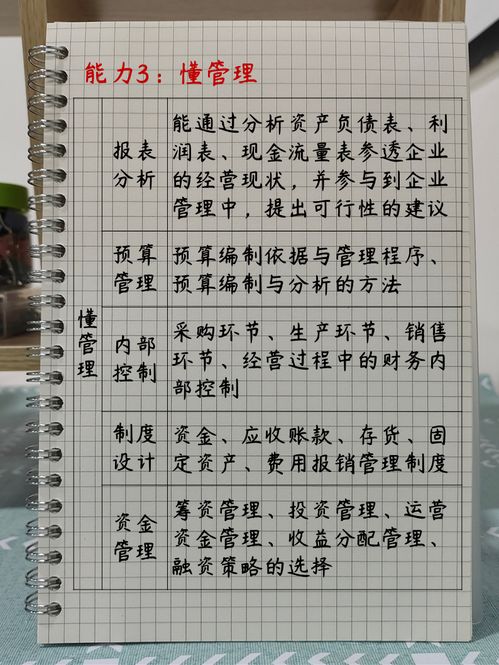 能力3：懂管理
懂管理
报表
分析
能通过分析资产负债表、利
润表、现金流量表参透企业
的经营现状，并参与到企业
管理中，提出可行性的建议
预算
管理
预算编制依据与管理程序、
预算编制与分析的方法
内部
控制
采购环节、生产环节、销售
环节、经营过程中的财务内
部控制
制度
设计
资金、应收账款、存货、固
定资产、费用报销管理制度
资金
管理
筹资管理、投资管理、运营
资金管理、收益分配管理、
融资策略的选择